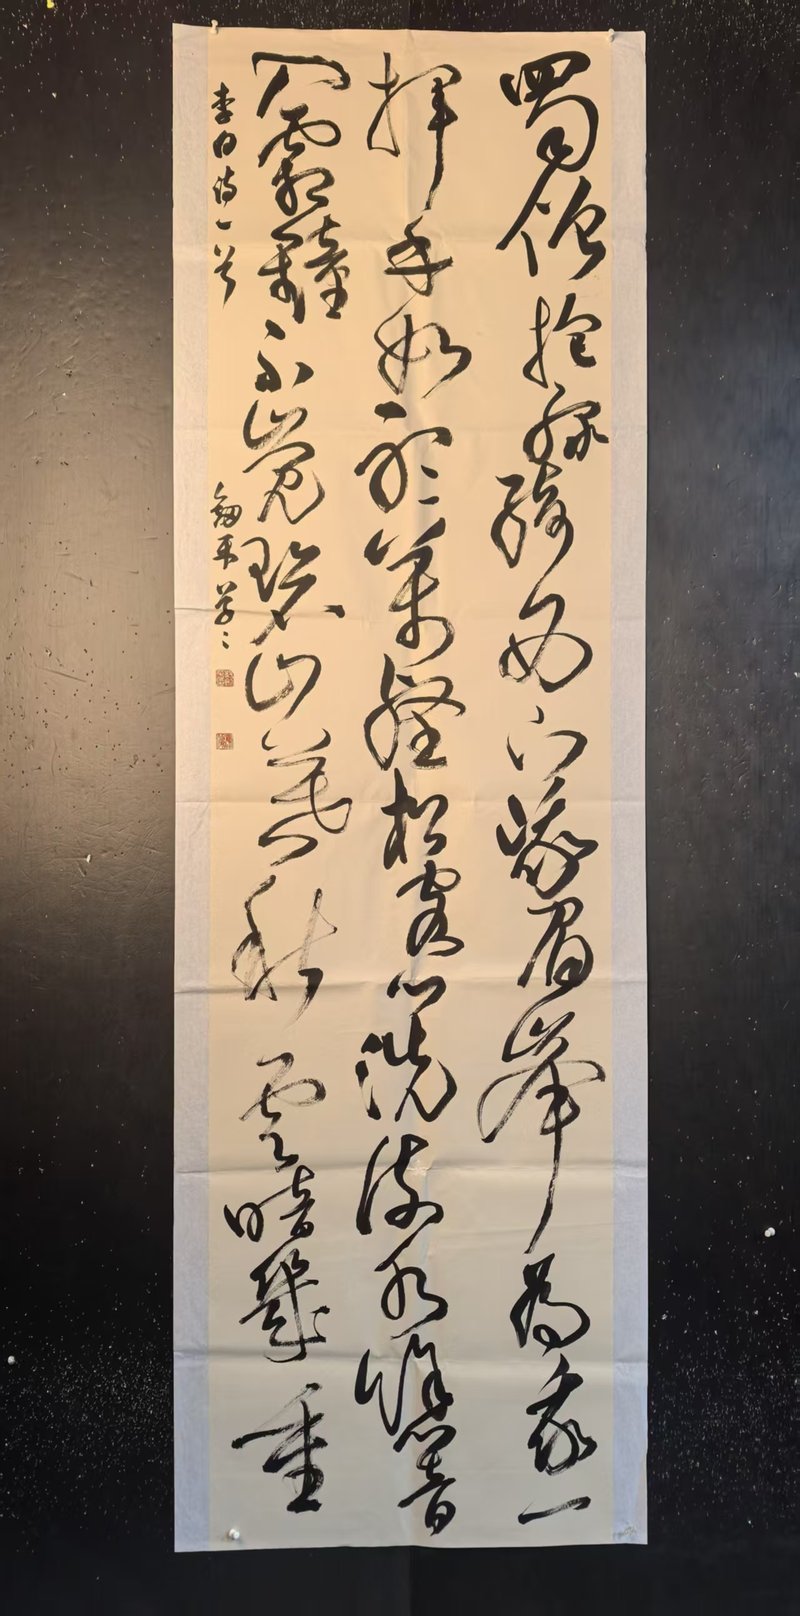 蜀僧抱綠綺西下峨眉峰為我一
揮手如聽萬壑松客心洗流水餘響
入霜鐘不覺碧山暮秋雲暗幾重
李白詩一首